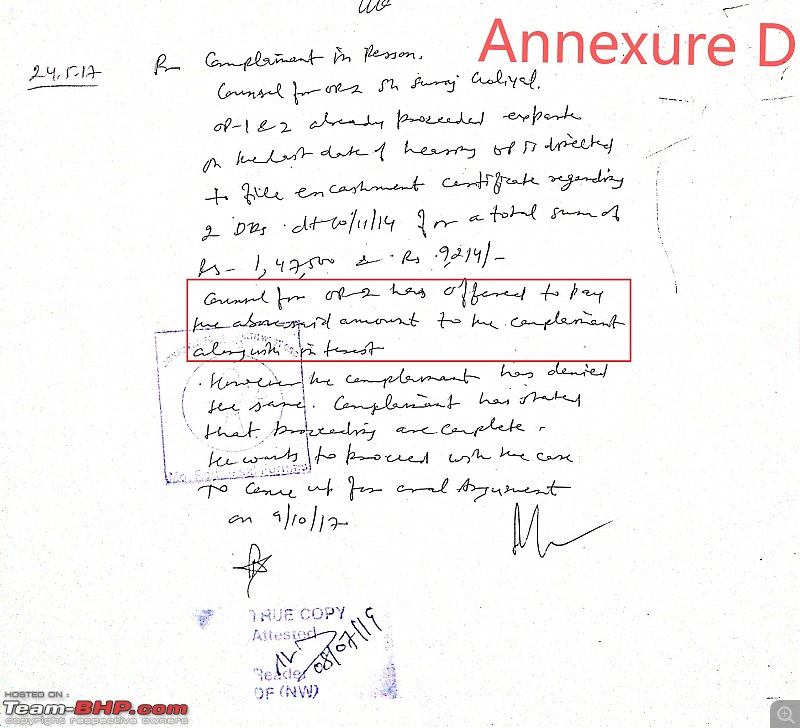 Annexure D
24.5.17
Pr Complainant in Person.
Counsel for OP-2 Sh Suraj
OP-1 & 2 already proceeded exparte
on the last date of hearing OP is directed
to file encashment certificate regarding
2 DRs dt 10/11/14 for a total sum of
Rs- 1,47,500 & Rs 9,214/-
Counsel for OP-2 has offered to pay
the abovesaid amount to the complainant
alongwith interest
However the complainant has denied
the same. Complainant has stated
that proceeding are complete.
He wants to proceed with the case
To come up for oral Argument
on 9/10/17
TRUE COPY
Attested
08/07/19
Reader
DF (NW)
HOSTED ON :
Team-BHP.com
copyright respective owners